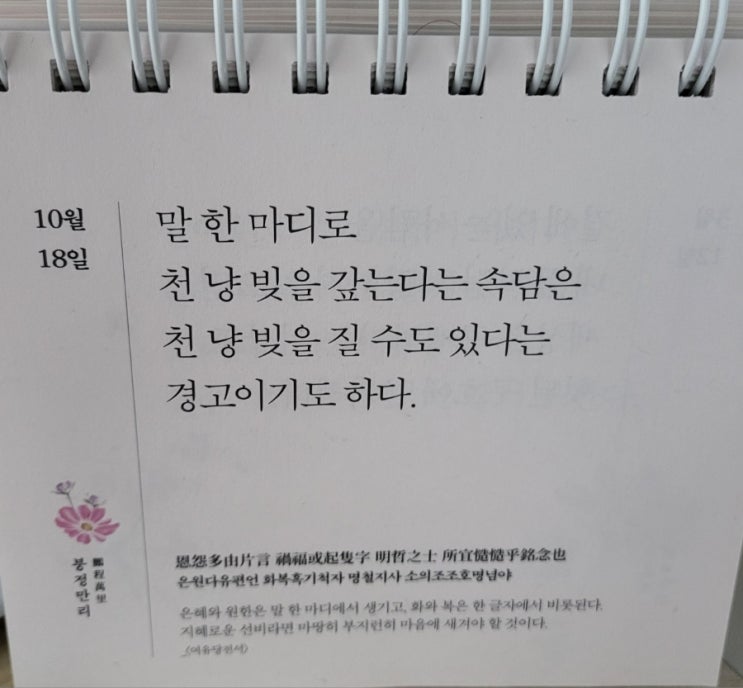 10월
18일
말 한 마디로
천 냥 빚을 갚는다는 속담은
천 냥 빚을 질 수도 있다는
경고이기도 하다.
恩怨多由片言 禍福或起隻字 明哲之士 所宜慥慥乎銘念也
은원다유편언 화복혹기척자 명철지사 소의조조호명념야
은혜와 원한은 말 한 마디에서 생기고, 화와 복은 한 글자에서 비롯된다.
지혜로운 선비라면 마땅히 부지런히 마음에 새겨야 할 것이다.
<여유당전서>
붕정만리
鵬程萬里